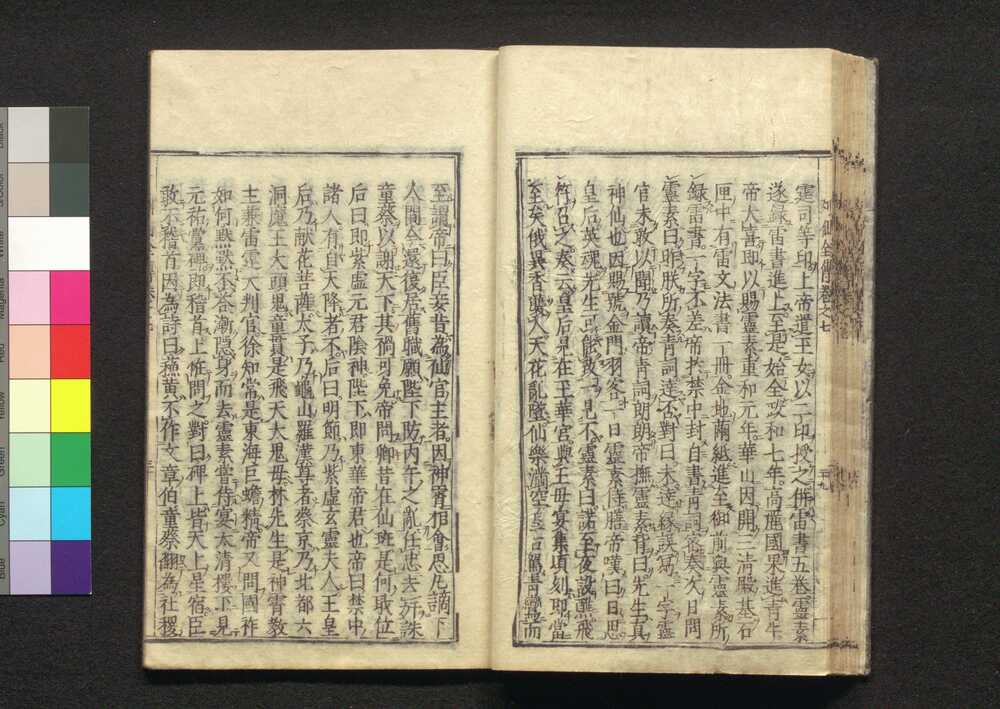 霆司等印上帝遣玉女以二印授之併雷書五卷靈素
遂錄雷書進上至是始全政和七年高麗國果進青牛
帝大喜即以賜靈素重和元年華山因開三清殿基石
匣中有雷文法書一冊金地蘭紙進至御前與靈素所
錄雷書一字不差帝於禁中封自書青詞密奏久日問
靈素曰昨朕所奏青詞達否對曰未達緣誤寫一字靈
官未敢以聞乃讀帝青詞朗朗帝撫靈素背曰先生真
神仙也因賜號金門羽客一日靈素侍膳帝嘆曰日思
皇后英魂先生可能致一見不靈素曰諾至夜設醮飛
符召之奏云皇后見在玉華宮與王母宴集頃刻即當
至矣俄異香襲人天花亂墜仙樂滿空 后駕青鸞而
至謂帝曰臣妾昔為仙官主者因神霄相會思凡謫下
人間今還復居舊職願陛下防丙午之亂任忠去奸誅
童蔡以謝天下其禍可免帝問卿昔在仙班是何職位
后曰即紫虛元君陰神陛下即東華帝君也帝曰禁中
諸人有自天降者不后曰明節乃紫虛玄靈夫人王皇
后乃獻花菩薩太子乃龜山羅漢尊者蔡京乃北都六
洞魔王大頭鬼童貫是飛天大鬼母林先生是神霄教
主兼雷霆大判官徐知常是東海巨蟾精帝又問國祚
如何默默不答漸隱身而去靈素嘗侍宴太清樓下見
元祐黨碑即稽首上怪問之對曰碑上皆天上星宿臣
敢不稽首因為詩曰蘇黃不作文章伯童蔡翻為社稷